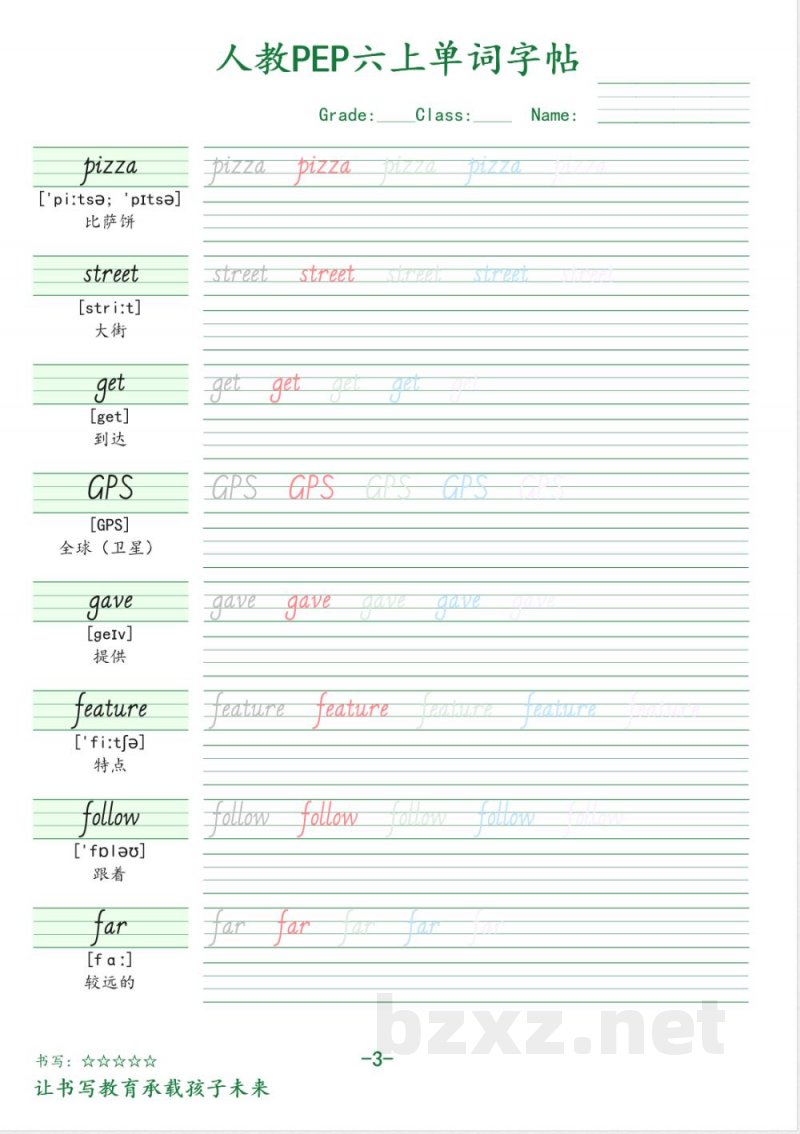 人教PEP六上单词字帖
Grade:____Class:____ Name:
pizza pizza pizza pizza pizza pizza
['pi:tsə; 'pɪtsə]
比萨饼
street street street street street street
[stri:t]
大街
get get get get get get
[get]
到达
GPS GPS GPS GPS GPS GPS
[GPS]
全球（卫星）
gave gave gave gave gave gave
[geɪv]
提供
feature feature feature feature feature feature
['fi:tʃə]
特点
follow follow follow follow follow follow
['fɒləʊ]
跟着
far far far far far far
[fɑ:]
较远的
bzxz.net
书写：☆☆☆☆☆
-3-
让书写教育承载孩子未来